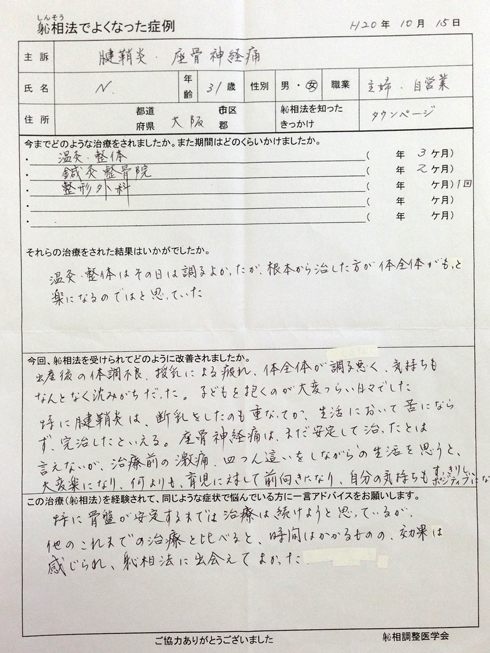 しんそう
躰相法でよくなった症例
H20年 10月 15日
主訴 腱鞘炎・座骨神経痛
氏名 N. 年齢 31歳 性別 男・女 職業 主婦・自営業
住所 都道府県 大阪 市区郡 躰相法を知ったきっかけ タウンページ
今までどのような治療をされましたか。また期間はどのくらいかけましたか。
・ 温灸・整体 ( 年 3 ケ月)
・ 鍼灸整骨院 ( 年 2 ケ月)
・ 整形外科 ( 年 ケ月) 1回
・ ( 年 ケ月)
・ ( 年 ケ月)
それらの治療をされた結果はいかがでしたか。
温灸・整体はその日は調子よかったが、根本から治した方が体全体がもっと
楽になるのではと思っていた
今回、躰相法を受けられてどのように改善されましたか。
出産後の体調不良、授乳による疲れ、体全体が調子悪く、気持ちも
なんとなく沈みがちだった。子どもを抱くのが大変つらい日々でした
特に腱鞘炎は、断乳をしたのも重なってか、生活において苦になら
ず、完治したといえる。座骨神経痛は、まだ安定して治ったとは
言えないが、治療前の激痛、四つん這いをしながらの生活を思うと、
大変楽になり、何よりも、育児に対して前向きになり、自分の気持ちもすっきりし、ポジティブにな
この治療(躰相法)を経験されて、同じような症状で悩んでいる方に一言アドバイスをお願いします。
特に骨盤が安定するまでは治療は続けようと思っているが、
他のこれまでの治療と比べると、時間はかかるものの、効果は
感じられ、躰相法に出会えてよかった
ご協力ありがとうございました
躰相調整医学会